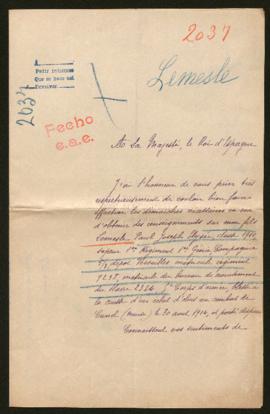 2037
A
Petit
Que se haga
Lemesle
2037
Fecho
e.a.e.
A Sa Majesté, le Roi d'Espagne
J'ai l'honneur de vous prier très
respectueusement de vouloir bien faire
effectuer les démarches nécessaires en vue
d'obtenir des renseignements sur mon fils
Lemesle, Paul Joseph classe 1910,
sapeur Régiment Génie Compagnie
dépôt Versailles matricule régiment
7235, matricule du bureau de recrutement
du Mans 2324 Corps d'armée
la suite d'un éclat d'obus au combat de
(Meuse) le 30 août 1914, et porté disparu
Connaissant vos sentiments de